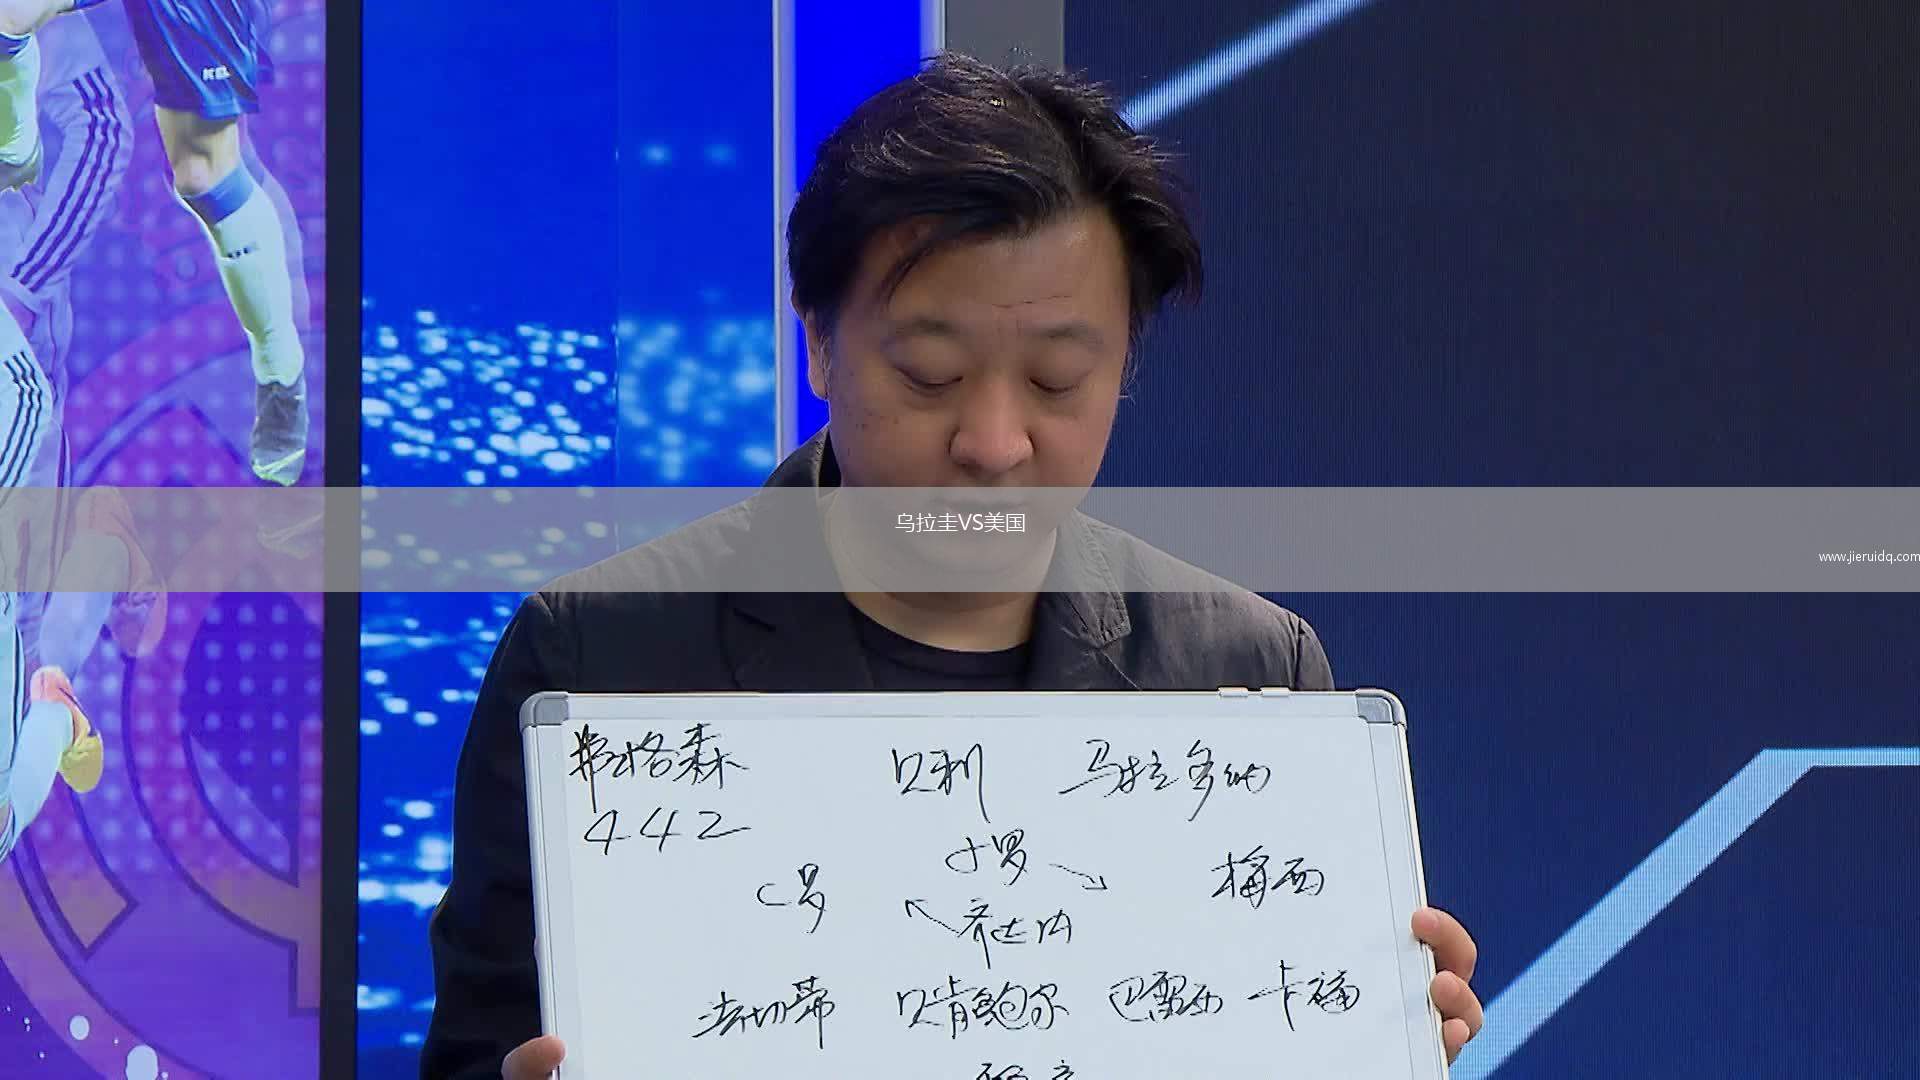 乌拉圭VS美国
www.jieruidq.com
弗格森 贝利 马拉多纳
442
小罗
C罗 梅西
齐达内
法切蒂 贝肯鲍尔 巴雷西 卡福